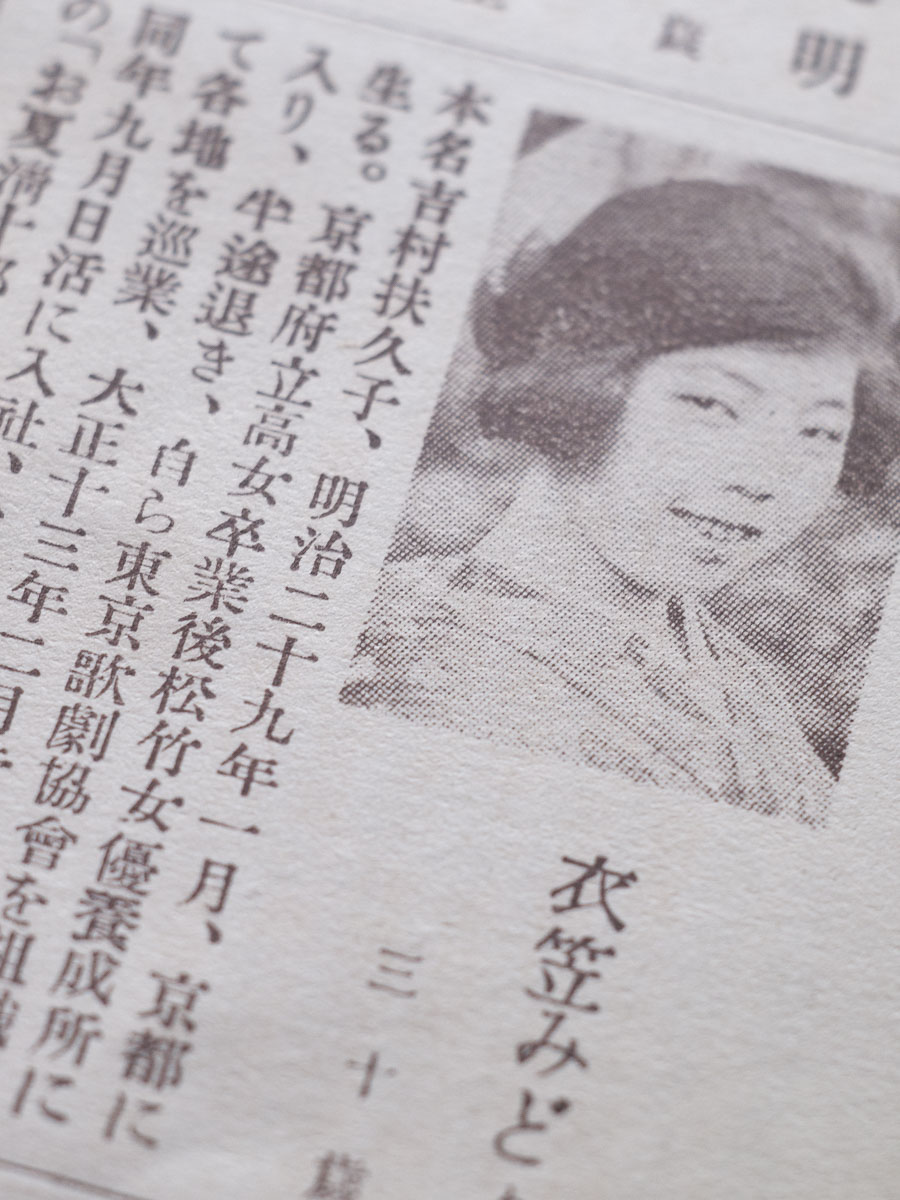 明
歳
衣笠みど
三十歳
本名吉村扶久子、明治二十九年一月、京都に
生る。京都府立高女卒業後松竹女優養成所に
入り、半途退き、自ら東京歌劇協會を組織
て各地を巡業、大正十三年二月
同年九月日活に入社、
の「お夏清十郎